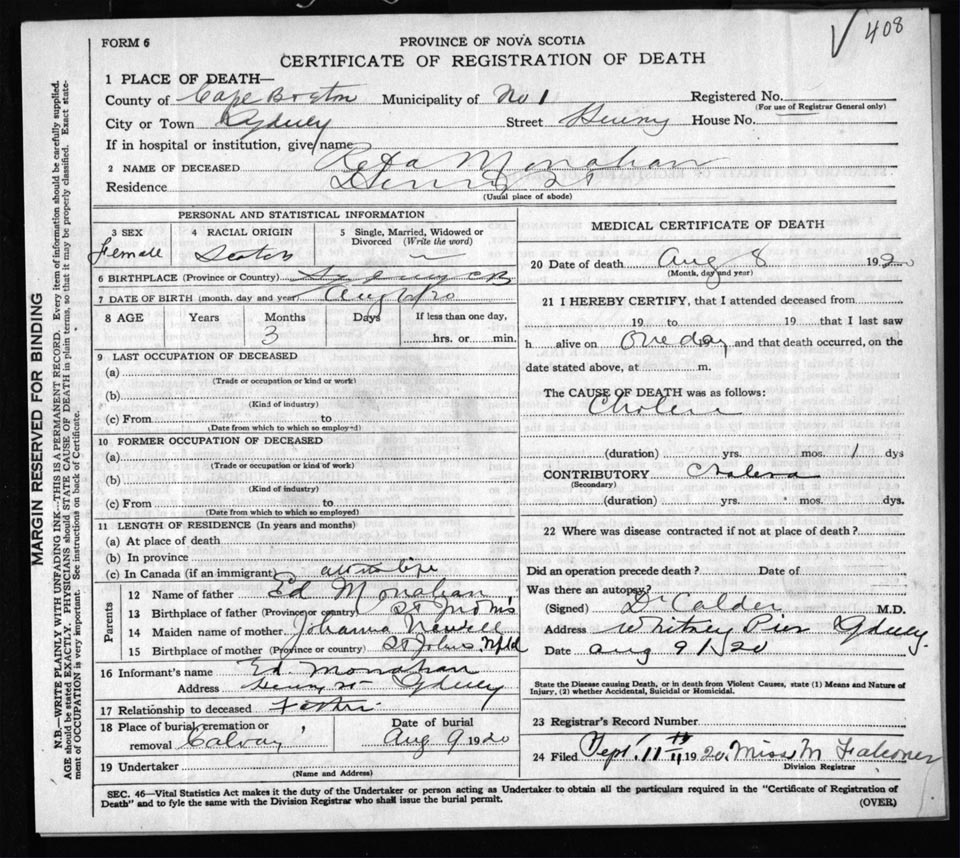 408
FORM 6
PROVINCE OF NOVA SCOTIA
CERTIFICATE OF REGISTRATION OF DEATH
1 PLACE OF DEATH—
County of Cape Breton Municipality of No 1 Registered No.
(For use of Registrar General only)
City or Town Sydney Street Henry House No.
If in hospital or institution, give name
2 NAME OF DECEASED Reta Monahan
Residence Henry St
(Usual place of abode)
PERSONAL AND STATISTICAL INFORMATION
3 SEX Female
4 RACIAL ORIGIN Scotch
5 Single, Married, Widowed or Divorced (Write the word)
6 BIRTHPLACE (Province or Country) Sydney CB
7 DATE OF BIRTH (month, day and year)
8 AGE Years Months Days If less than one day,
3 hrs. or min.
9 LAST OCCUPATION OF DECEASED
(a)
(Trade or occupation or kind or work)
(b)
(Kind of industry)
(c) From to
(Date from which to which so employed)
10 FORMER OCCUPATION OF DECEASED
(a)
(Trade or occupation or kind of work)
(b)
(Kind of industry)
(c) From to
(Date from which to which so employed)
11 LENGTH OF RESIDENCE (In years and months)
(a) At place of death
(b) In province
(c) In Canada (if an immigrant)
Parents
12 Name of father Ed Monahan
13 Birthplace of father (Province or country) St
14 Maiden name of mother Johanna Newell
15 Birthplace of mother (Province or country) St Johns Nfld
16 Informant's name Ed. Monahan
Address Henry St Sydney
17 Relationship to deceased Father
18 Place of burial, cremation or removal Calvary
Date of burial Aug 9 1920
19 Undertaker
(Name and Address)
MEDICAL CERTIFICATE OF DEATH
20 Date of death Aug 8 192
(Month, day and year)
21 I HEREBY CERTIFY, that I attended deceased from
19 to 19 that I last saw
h alive on One day and that death occurred, on the
date stated above, at m.
The CAUSE OF DEATH was as follows:
Cholera
(duration) yrs. mos. 1 dys
CONTRIBUTORY Cholera
(Secondary)
(duration) yrs. mos. dys.
22 Where was disease contracted if not at place of death?
Did an operation precede death? Date of
Was there an autopsy?
(Signed) Dr Calder M.D.
Address Whitney Pier Sydney.
Date Aug 9/20
State the Disease causing Death, or in death from Violent Causes, state (1) Means and Nature of
Injury, (2) whether Accidental, Suicidal or Homicidal.
23 Registrar's Record Number
24 Filed Sept. 11 th 1920. Miss M Falconer
Division Registrar
SEC. 46—Vital Statistics Act makes it the duty of the Undertaker or person acting as Undertaker to obtain all the particulars required in the "Certificate of Registration of
Death" and to fyle the same with the Division Registrar who shall issue the burial permit.
(OVER)
MARGIN RESERVED FOR BINDING
N.B.—WRITE PLAINLY WITH UNFADING INK—THIS IS A PERMANENT RECORD. Every item of information should be carefully supplied.
AGE should be stated EXACTLY. PHYSICIANS should STATE CAUSE OF DEATH in plain terms, so that it may be properly classified. Exact state-
ment of OCCUPATION is very important. See instructions on back of Certificate.